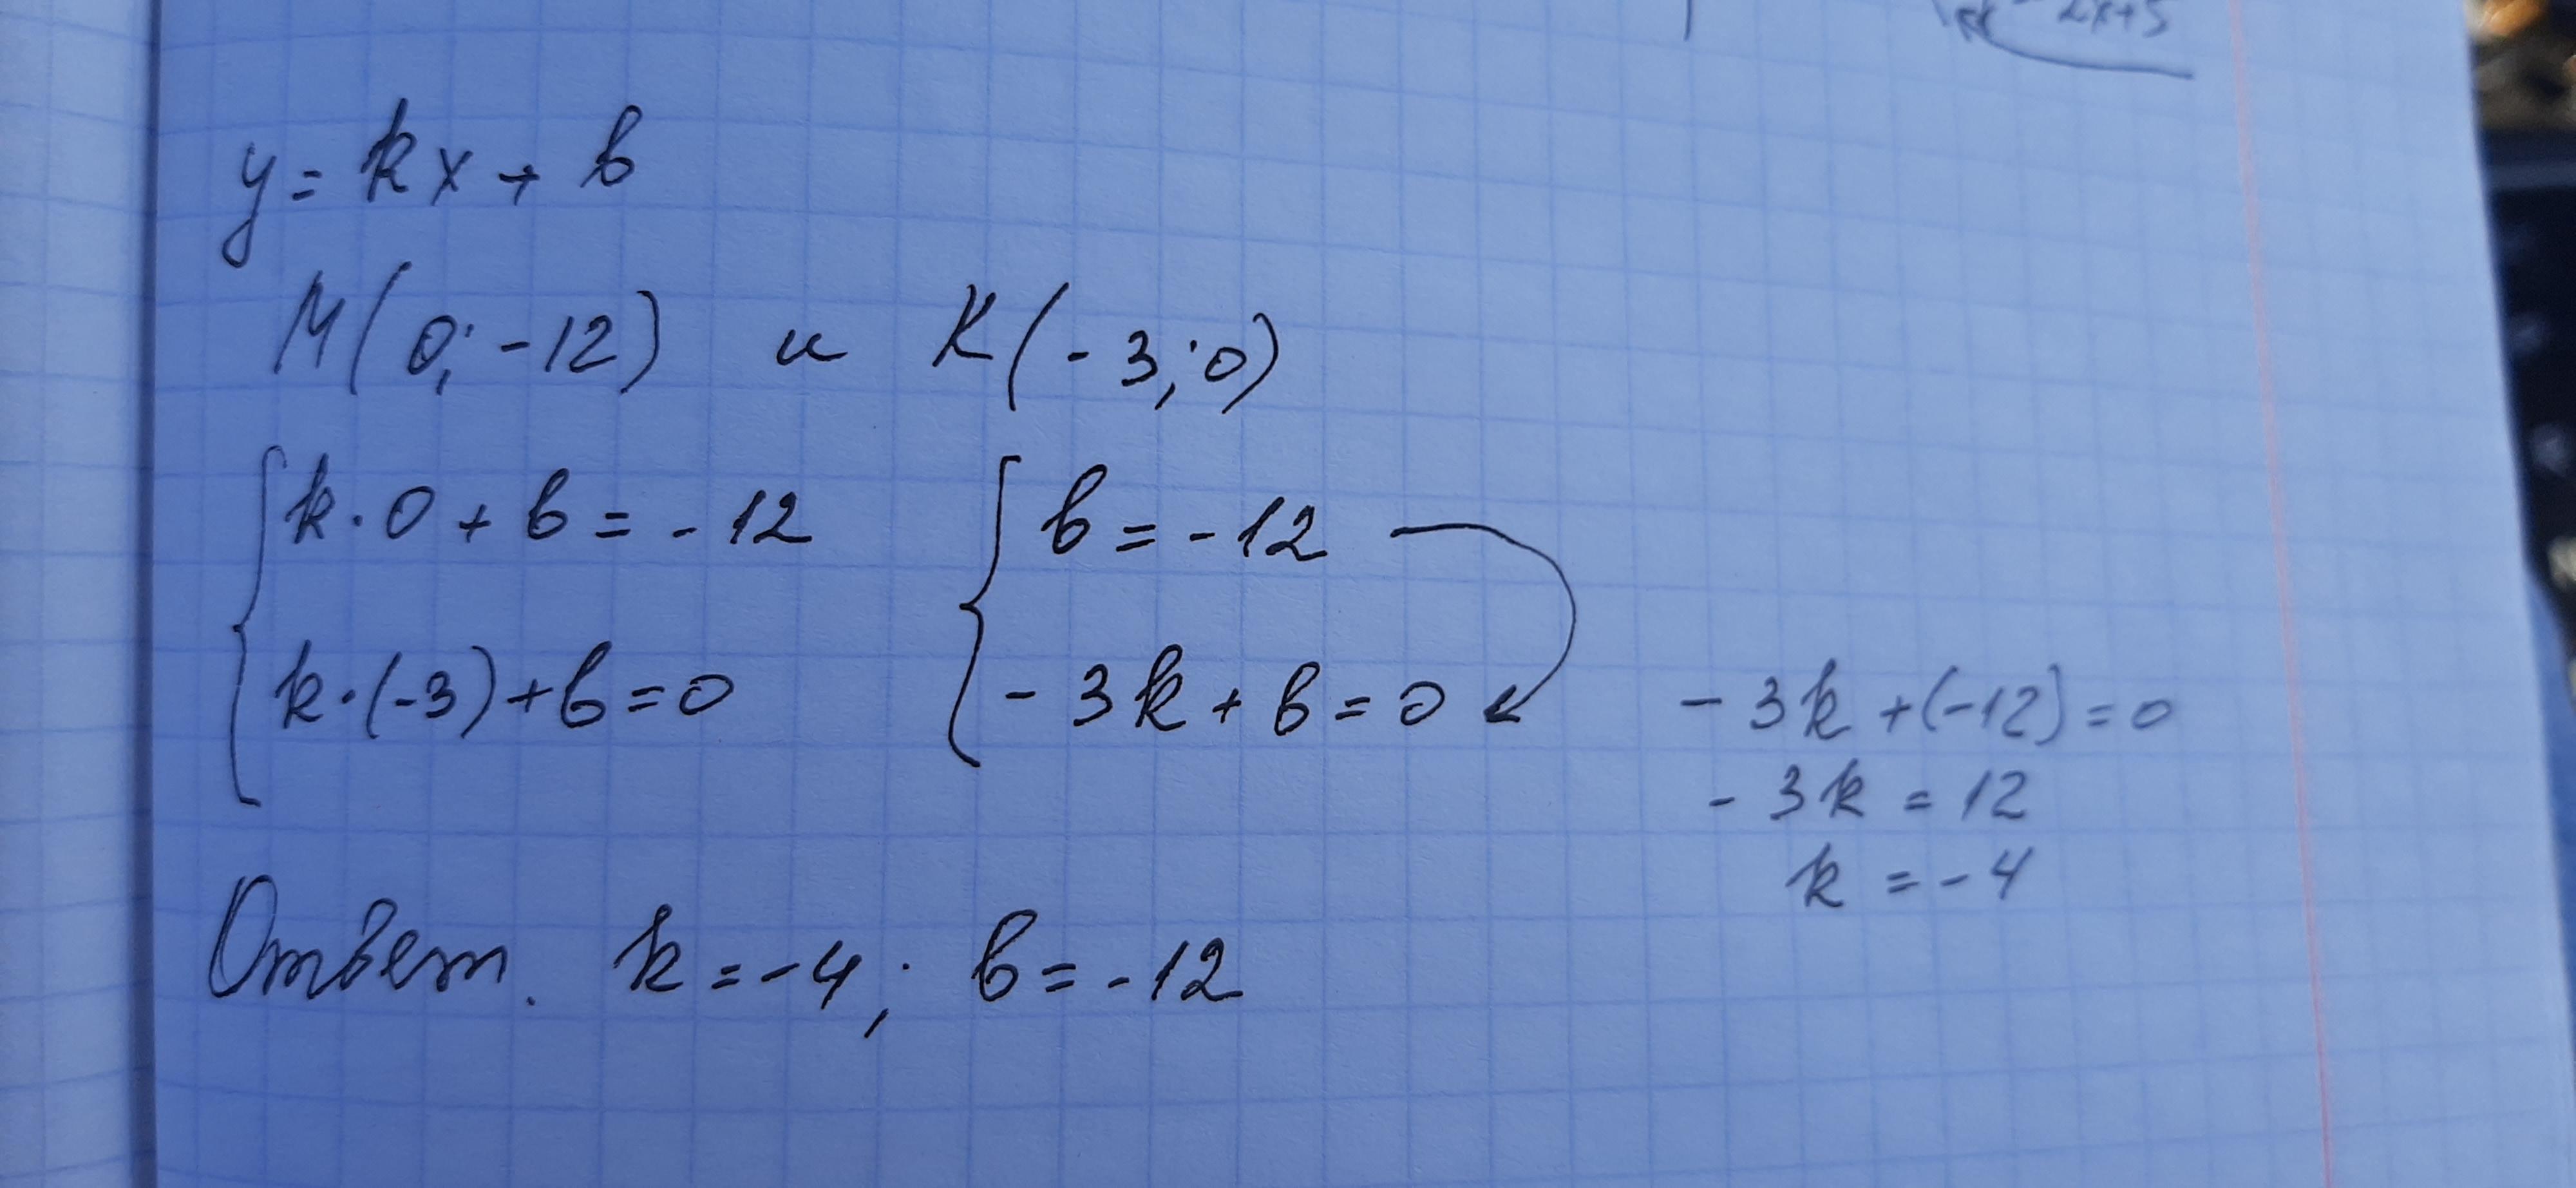 2x+5
y = kx + b
M(0; -12) и K(-3; 0)
k·0 + b = -12 b = -12
k·(-3) + b = 0 -3k + b = 0 -3k + (-12) = 0
-3k = 12
k = -4
Ответ. k = -4; b = -12